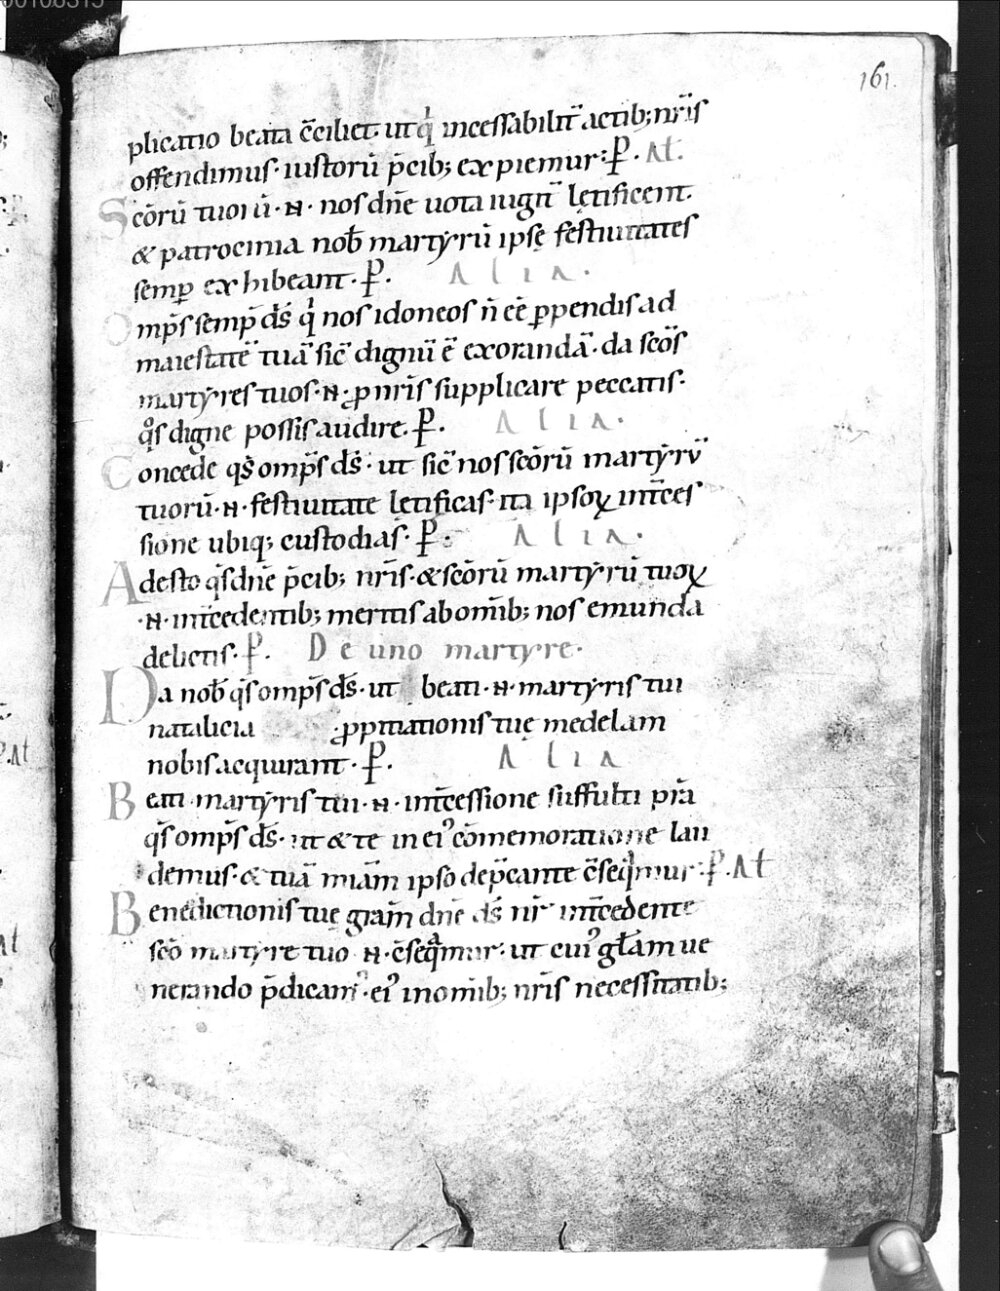 00108315
161.
plicatio beata c̄ciliet. ut qͥ incessabilit̄ actib; nr̄is
offendimus· iustorū p̄cib; expiemur: P̱. At.
Scōrū tuorū ·N· nos dn̄e uota iugit̄ lętificent.
& patrocinia nob̄ martyrū ipsę festiuitates
semꝑ exhibeant· P̱. Alia.
Omp̄s semp̄ ds̄ qͥ nos idoneos n̄ eē ꝑpendis ad
maiestatē tuā sic̄ dignū ē exorandā· da scōs
martyres tuos ·N· ꝓ nr̄is supplicare peccatis.
qͦs digne possis audire. P̱. Alia.
Concede qs̄ omp̄s ds̄· ut sic̄ nos scōrū martyrū
tuorū ·N· festiuitate lętificas· ita ipsoꝝ int̄ces
sione ubiq; custodias· P̱. Alia.
Adesto qs̄ dn̄e p̄cib; nr̄is· & scōrū martyrū tuoꝝ
·N· int̄cedentib; meritis ab om̄ib; nos emunda
delictis· P̱. De uno martyre.
Da nob̄ qs̄ omp̄s ds̄· ut beati ·N· martyris tui
natalicia ꝓpitiationis tuę medelam
nobis acquirant· P̱. Alia
Beati martyris tui ·N· int̄cessione suffulti p̄ta
qs̄ omp̄s ds̄· ut & te in ei᾽ cōmemoratione lau
demus· & tuā mīam ipso dep̄cante c̄seqͣmur: P̱. At
Benedictionis tuę grām dn̄e ds̄ nr̄ int̄cedente
scō martyre tuo N· c̄seqͣmur· ut cui᾽ glām ue
nerando p̄dicam᾽· ei᾽ in om̄ib; nr̄is necessitatib;